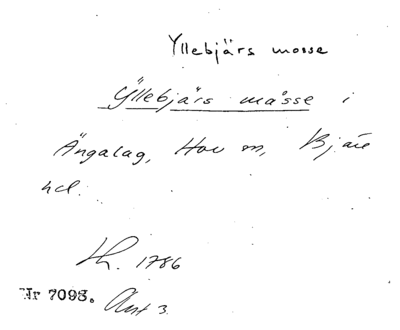 Yllebjärs mosse
Yllebjärs måsse i
Ängalag, Hov sn, Bjäre
hd.
Lh. 1786
Nr 7093. Akt 3.